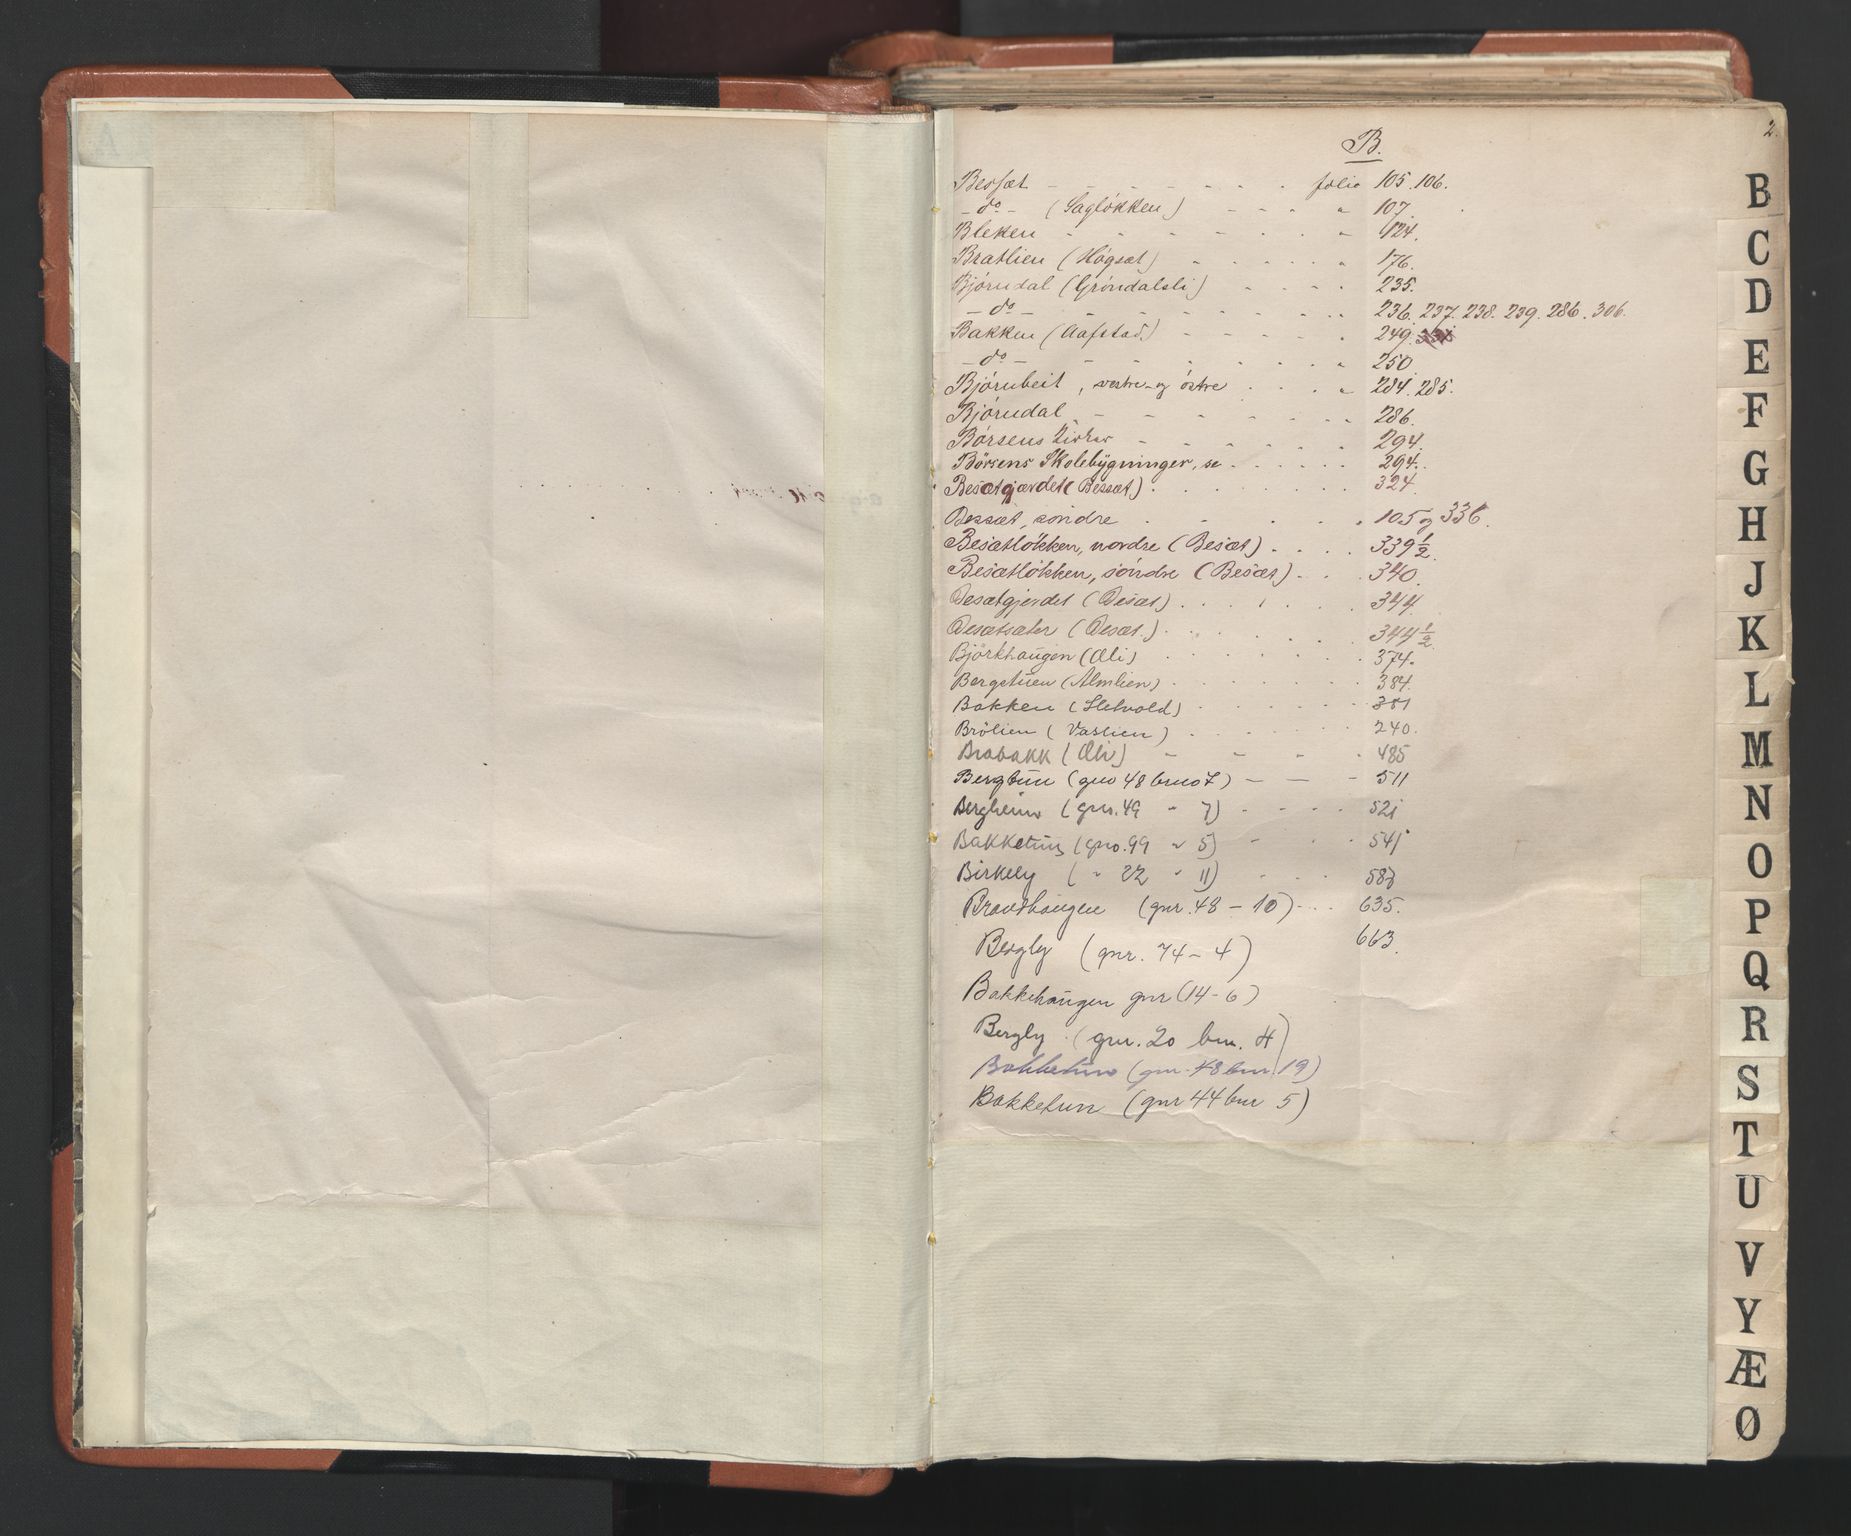 2.
B.
Bessæt - - - - - - - folio 105. 106.
- do - (Sagløkken) - - - " 107.
Bleken - - - - - - - " 124.
Bratlien (Høgsæt) - - - - - 176.
Bjørndal (Grøndalsli) - - - - 235.
- do - - - - - - - - 236. 237. 238. 239. 286. 306.
Bakken (Aafstad) - - - - - 249.
- do - - - - - - - " 250.
Bjørnbeit, vestre og østre . . . . " 284. 285.
Bjørndal - - - - - - " 286.
Børsens Kirke - - - - - - 294.
Børsens Skolebygninger, se . . . . . . 294.
Besætgjærdet (Bessæt) . . . . . . . 324.
Bessæt, søndre . . . . . 105 og 336.
Besætløkken, nordre (Besæt) . . . . 339 1/2.
Besætløkken, søndre (Besæt) . . . 340.
Besætgjerdet (Besæt) . . . . . . 344.
Besætsæter (Besæt.) . . . . . . 344 1/2.
Björkhaugen (Øli) . . . . . . . 374.
Bergstuen (Almlien) . . . . . . . 384.
Bakken (Sletvold) . . . . . . 351
Brölien (Vaslien) . . . . . . 240.
Brabakk (Øli) - - - . 485
Bergtun (gno 48 bruno 7) - - - 511
Bergheim (gnr. 49 " 7) . . . . 521
Bakketun (gno. 99 " 5) - . . 541
Birkely ( " 22 " 11) . . . 587
(gnr. 48 - 10) . . . 635.
Bergly (gnr. 74 - 4) 663.
Bakkehaugen gnr (14-6)
Bergly (gnr. 20 bnr. 4)
Bakketun (gnr. 48 bnr. 19)
Bakketun (gnr 44 bnr 5)
B
C
D
E
F
G
H
J
K
L
M
N
O
P
Q
R
S
T
U
V
Y
Æ
Ø